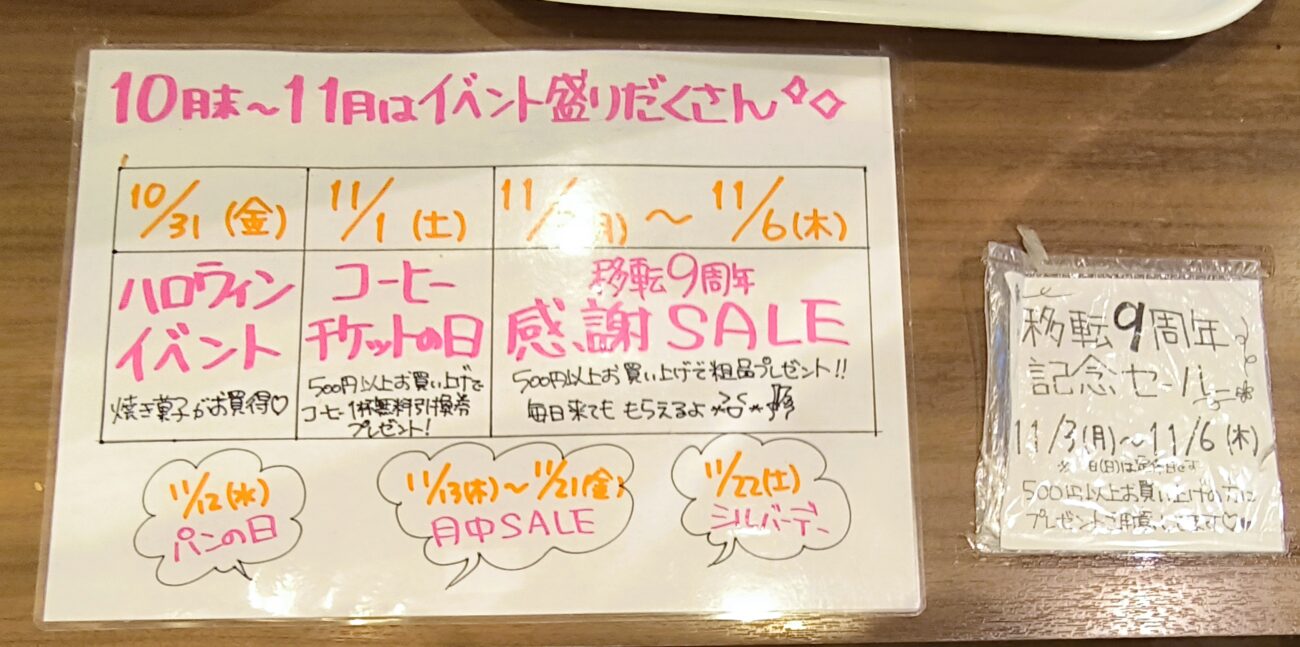 10月末～11月はイベント盛りだくさん
10/31(金)
ハロウィン
イベント
焼き菓子がお買得♡
11/1(土)
コーヒー
チケットの日
500円以上お買い上げで
コーヒー1杯無料引換券
プレゼント!
11/ 月)～11/6(木)
移転9周年
感謝SALE
500円以上お買い上げで粗品プレゼント!!
毎日来てももらえるよ
11/12(水)
パンの日
11/13(木)～11/21(金)
月中SALE
11/22(土)
シルバーデー
移転9周年
記念セール
11/3(月)～11/6(木)
日(日)は定休日です
500円以上お買い上げの方に
プレゼントご用意してます♡